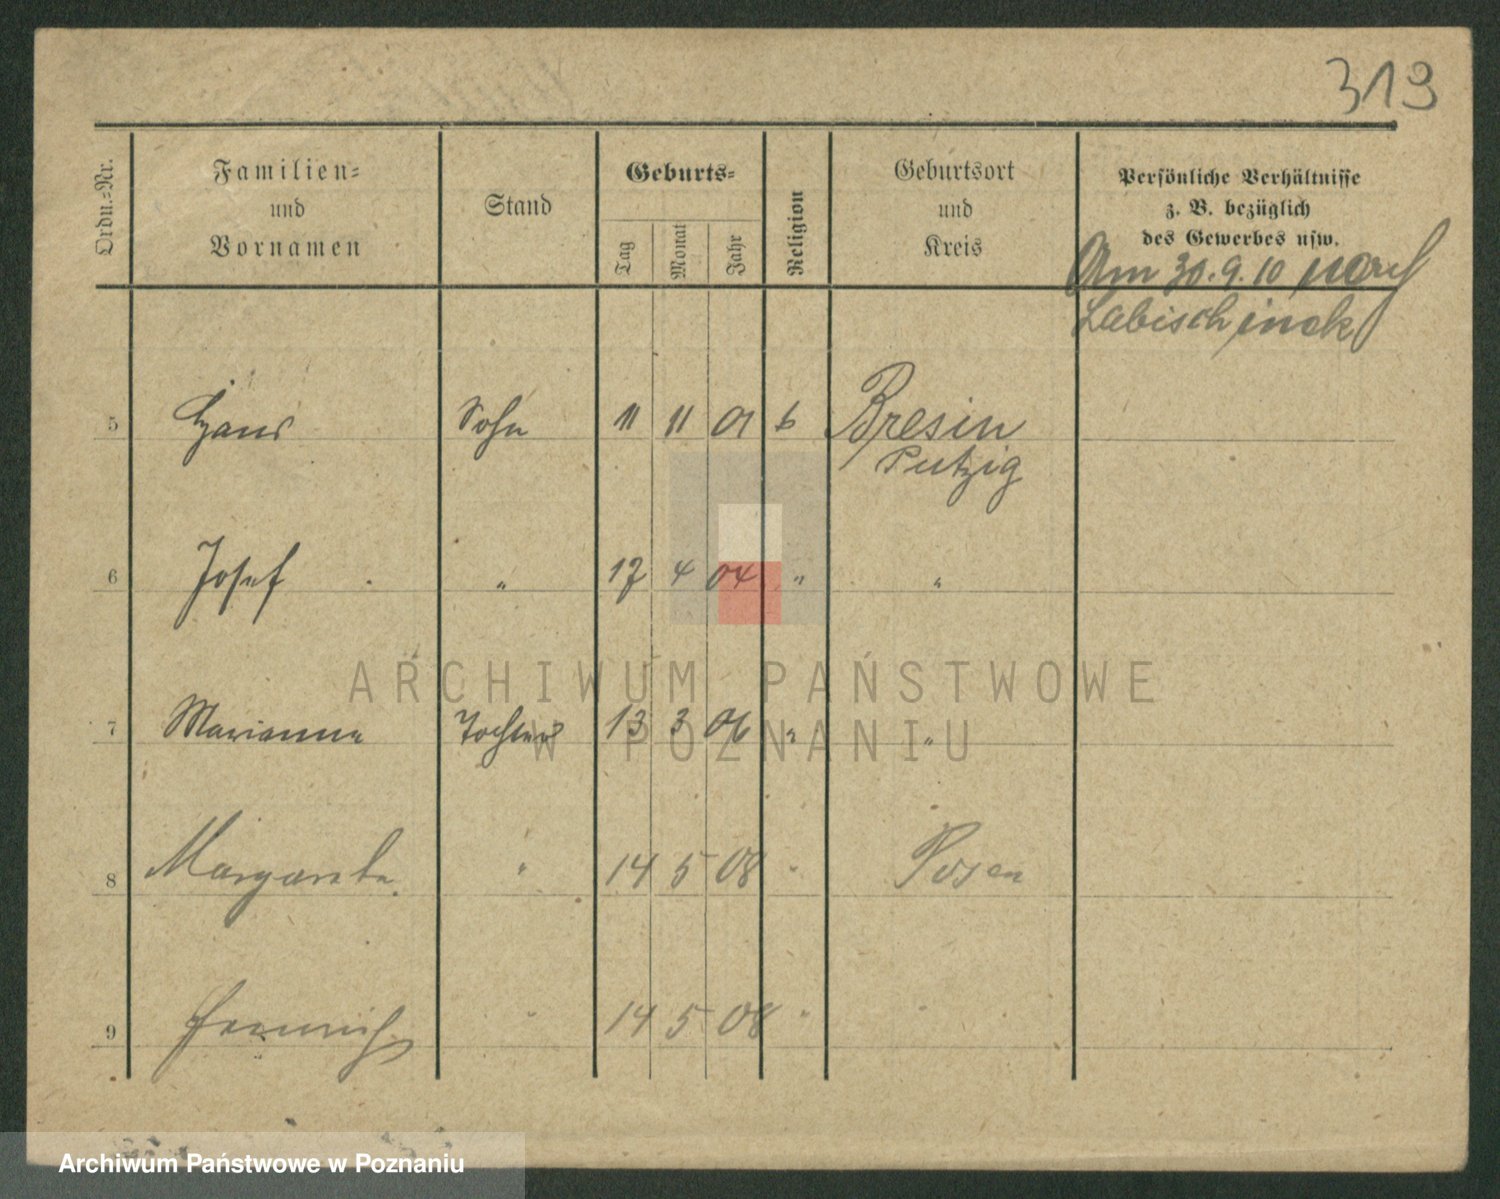 319
Ordn.-Nr.
Familien-
und
Vornamen
Stand
Geburts-
Tag
Monat
Jahr
Religion
Geburtsort
und
Kreis
Persönliche Verhältnisse
z. B. bezüglich
des Gewerbes usw.
Am 30.9.10 nach
Labischinek
5 Hans Sohn 11 11 01 k Bresin
Putzig
6 Josef " 17 4 04 " "
ARCHIWUM PAŃSTWOWE
7 Marianna Tochter 13 3 06 " "
W POZNANIU
8 Margarete " 14 5 08 " Posen
9 Heinrich " 14 5 08 " "
Archiwum Państwowe w Poznaniu